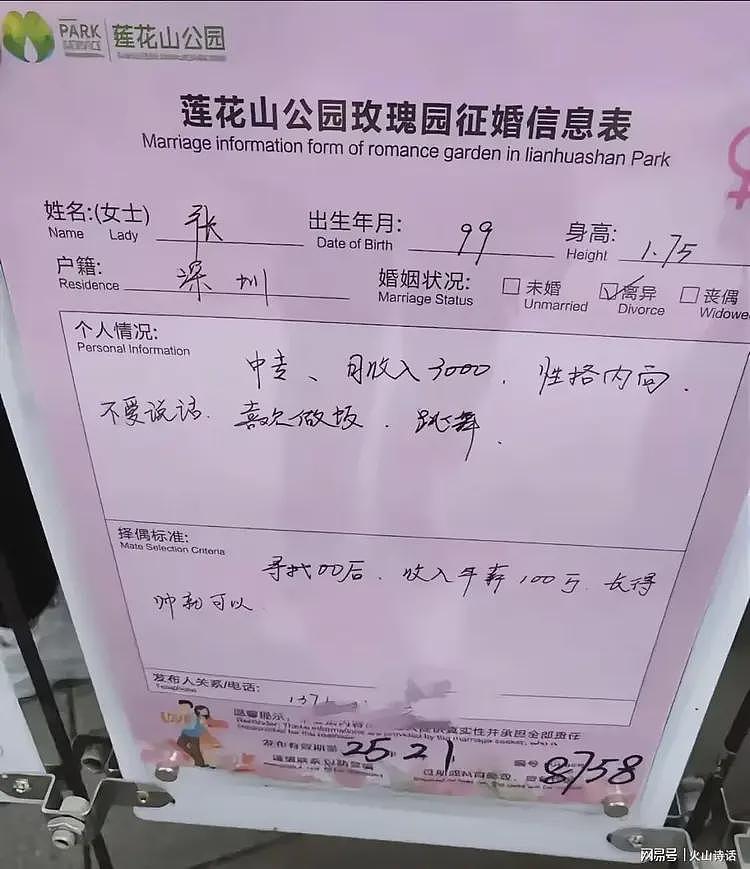 PARK 莲花山公园
SERVICE
莲花山公园玫瑰园征婚信息表
Marriage information form of romance garden in lianhuashan Park
姓名:(女士) 张 出生年月: 99 身高: 1.75
Name Lady Date of Birth Height
户籍: 深圳 婚姻状况: 未婚 离异 丧偶
Residence Marriage Status Unmarried Divorce Widowe
个人情况:
Personal Information
中专、月收入3000. 性格内向.
不爱说话. 喜欢做饭. 跳舞.
择偶标准:
Mate Selection Criteria
寻找00后. 收入年薪100万. 长得
帅就可以
发布人关系/电话: 137
Telephone
LOVE
温馨提示:
真实性并承担全部责任
发布有效期 25 21
编号 8758
网易号 | 火山诗话